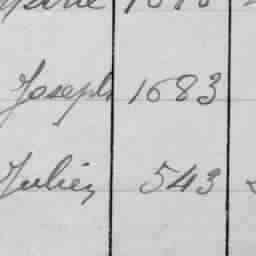 Joseph 1683
Julien 543